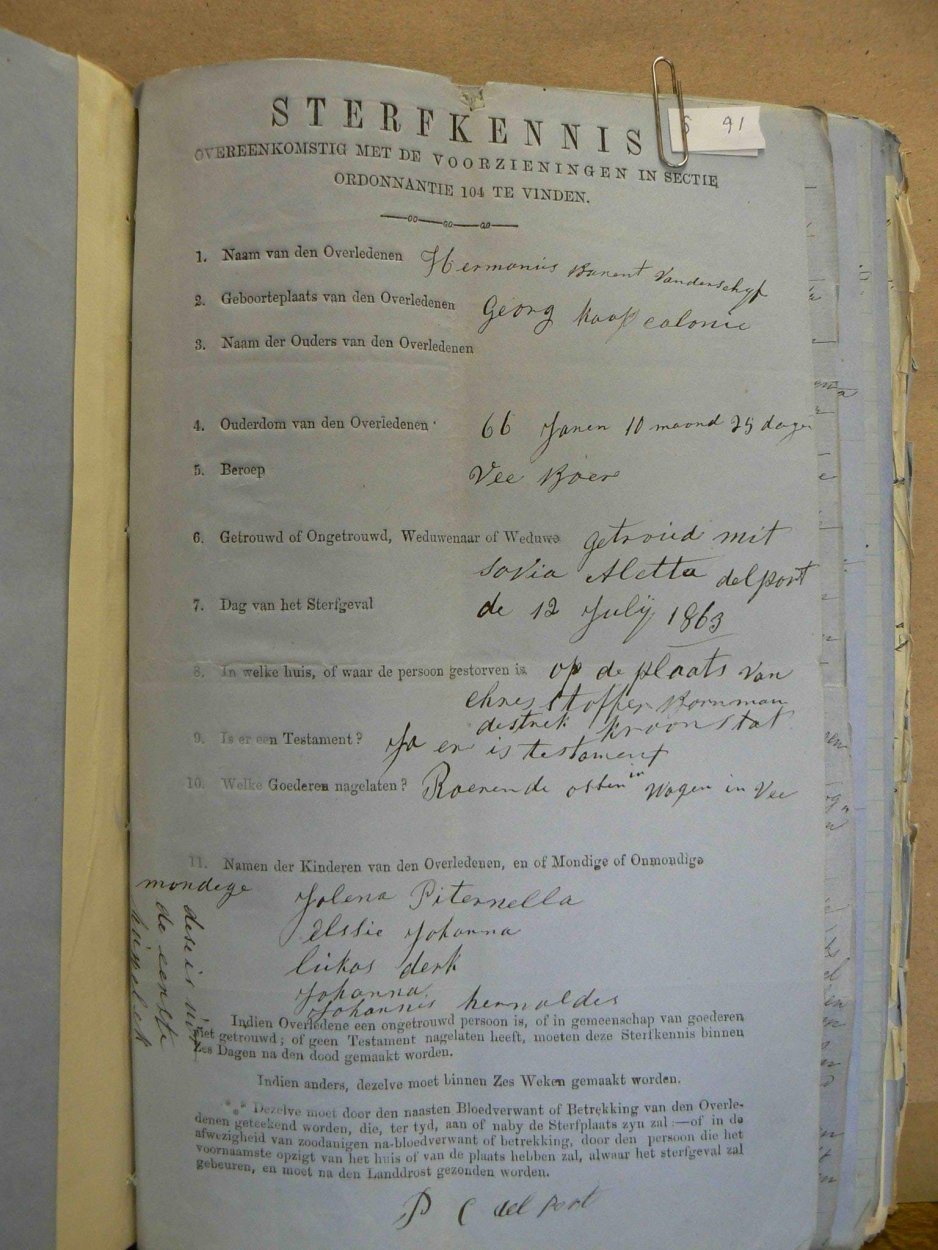 S 91
STERFKENNIS
OVEREENKOMSTIG MET DE VOORZIENINGEN IN SECTIE
ORDONNANTIE 104 TE VINDEN.
1. Naam van den Overledenen Hermanus Barent Vanderschyf
2. Geboorteplaats van den Overledenen Georg kaap colonie
3. Naam der Ouders van den Overledenen
4. Ouderdom van den Overledenen 66 Jaren 10 maand 25 dage
5. Beroep Vee Boer
6. Getrouwd of Ongetrouwd, Weduwenaar of Weduwe getroud mit
sovia Aletta delport
7. Dag van het Sterfgeval de 12 July 1863
8. In welke huis, of waar de persoon gestorven is. op de plaats van
chresstoffer Bornman
destrek kroonstat
9. Is er een Testament? Ja er is testament
10. Welke Goederen nagelaten? Roerende ossen in wagen in vee
11. Namen der Kinderen van den Overledenen, en of Mondige of Onmondige
mondege
Jolena Piternella
Elssie Johanna
lukas derk
Johanna
Johannis hernoldes
de eerste
Indien Overledene een ongetrouwd persoon is, of in gemeenschap van goederen
niet getrouwd; of geen Testament nagelaten heeft, moeten deze Sterfkennis binnen
Zes Dagen na den dood gemaakt worden.
Indien anders, dezelve moet binnen Zes Weken gemaakt worden.
*** Dezelve moet door den naasten Bloedverwant of Betrekking van den Overle-
denen geteekend worden, die, ter tyd, aan of naby de Sterfplaats zyn zal:—of in de
afwezigheid van zoodanigen na-bloedverwant of betrekking, door den persoon die het
voornaamste opzigt van het huis of van de plaats hebben zal, alwaar het sterfgeval zal
gebeuren, en moet na den Landdrost gezonden worden.
P C del Port